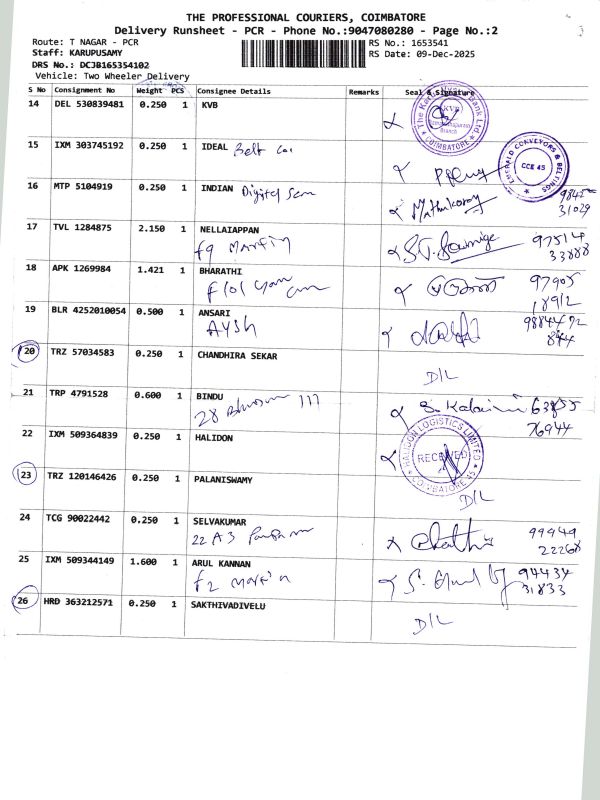 THE PROFESSIONAL COURIERS, COIMBATORE
Delivery Runsheet - PCR - Phone No.:9047080280 - Page No.:2
Route: T NAGAR - PCR RS No.: 1653541
Staff: KARUPUSAMY RS Date: 09-Dec-2025
DRS No.: DCJB165354102
Vehicle: Two Wheeler Delivery
S No Consignment No Weight PCS Consignee Details Remarks Seal & Signature
14 DEL 530839481 0.250 1 KVB
The Bank Ltd. KVB Branch COIMBATORE
15 IXM 303745192 0.250 1 IDEAL Belt
EMERALD CONVEYORS & BELTINGS CCE 45
16 MTP 5104919 0.250 1 INDIAN Digital
31029
17 TVL 1284875 2.150 1 NELLAIAPPAN 97514
f9 33888
18 APK 1269984 1.421 1 BHARATHI 97905
F101 18912
19 BLR 4252010054 0.500 1 ANSARI 9884472
AYSH 844
20 TRZ 57034583 0.250 1 CHANDHIRA SEKAR
D/L
21 TRP 4791528 0.600 1 BINDU
28 111 76944
22 IXM 509364839 0.250 1 HALIDON
HALIDON LOGISTICS LIMITED RECEIVED COIMBATORE 45
23 TRZ 120146426 0.250 1 PALANISWAMY
D/L
24 TCG 90022442 0.250 1 SELVAKUMAR 99949
22 A3 22268
25 IXM 509344149 1.600 1 ARUL KANNAN 94434
f2 31833
26 HRD 363212571 0.250 1 SAKTHIVADIVELU
D/L